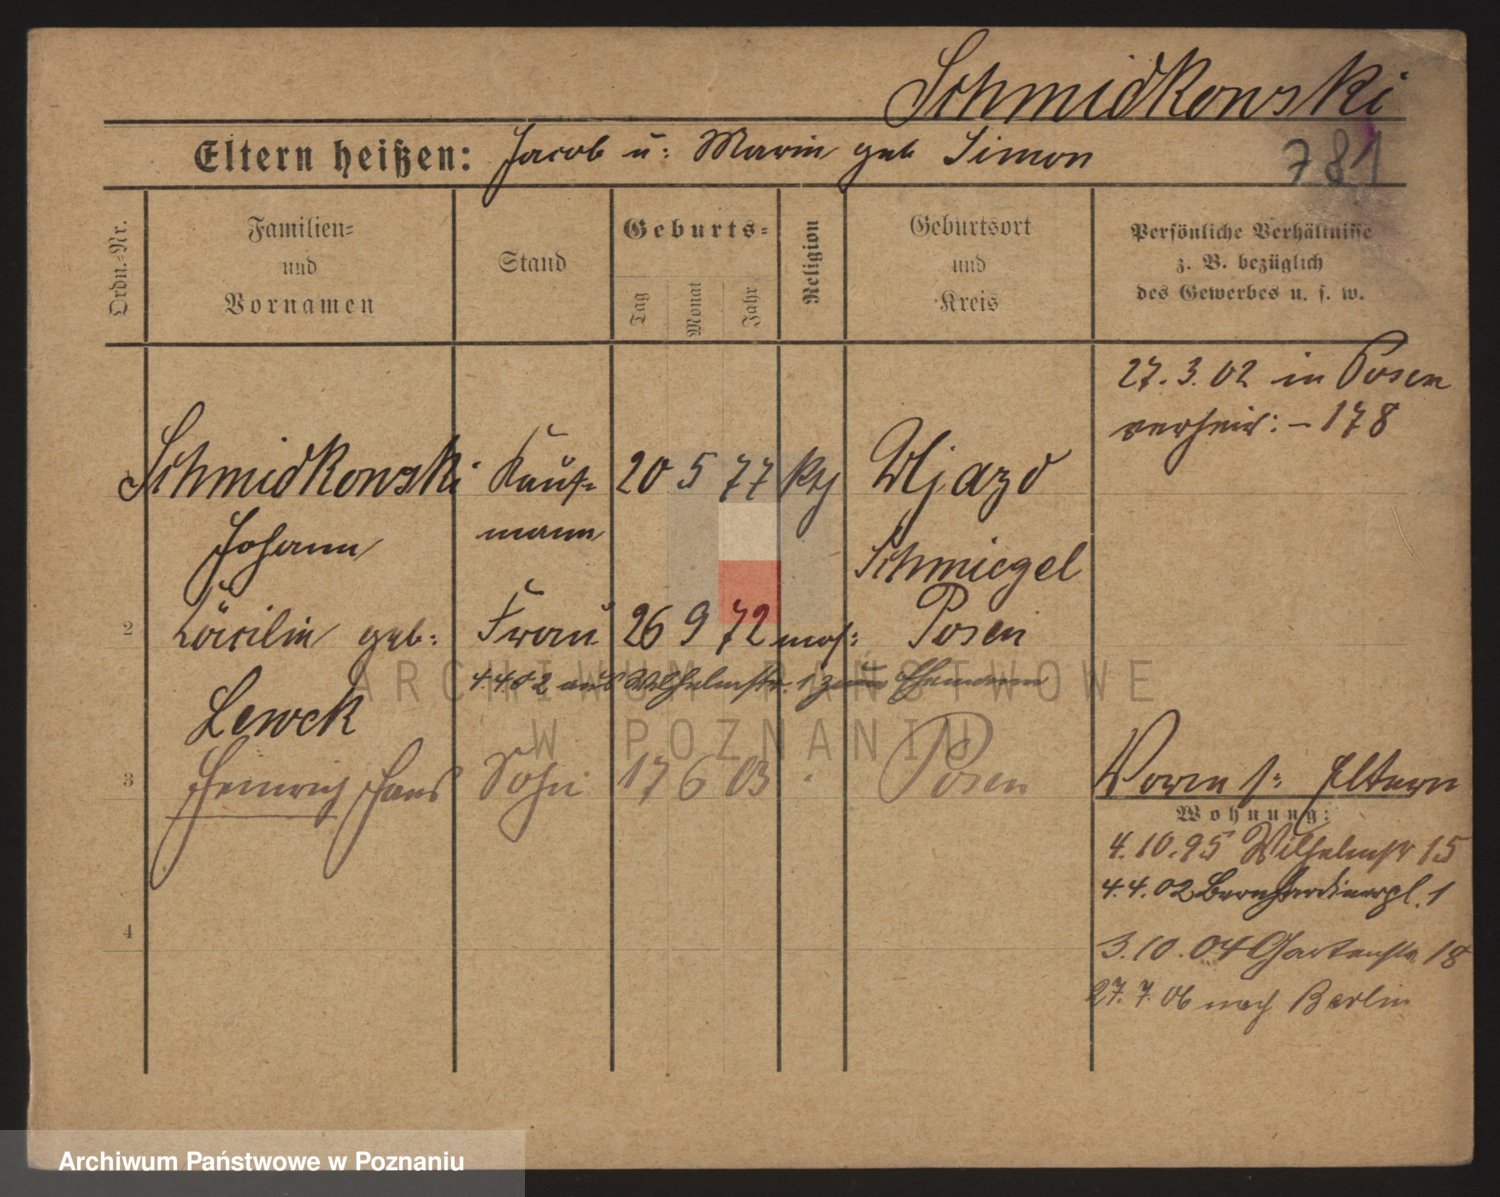 Schmidkowski
Eltern heißen: Jacob u: Marie geb Simon
781
Ordn.-Nr.
Familien-
und
Vornamen
Stand
Geburts-
Tag
Monat
Jahr
Religion
Geburtsort
und
Kreis
Persönliche Verhältnisse
z. B. bezüglich
des Gewerbes u. s. w.
27.3.02 in Posen
verheir: - 178
Schmidkowski Kauf- 20 5 77 Wjazd
Johann mann Schmiegel
2 Cäcilie geb: Frau 26 9 72 mos: Posen
4.4.02 aus Wilhelmstr. 1 zum Ehemann
Lewek
3 Heinrich Hans Sohn 17 6 03 Posen
Vorm s: Eltern
Wohnung:
4.10.95 Wilhelmstr 15
4.4.02 Bernhardinerpl. 1
3.10.04 Gartenstr 18
27.7.06 nach Berlin
4
ARCHIWUM PAŃSTWOWE
W POZNANIU
Archiwum Państwowe w Poznaniu